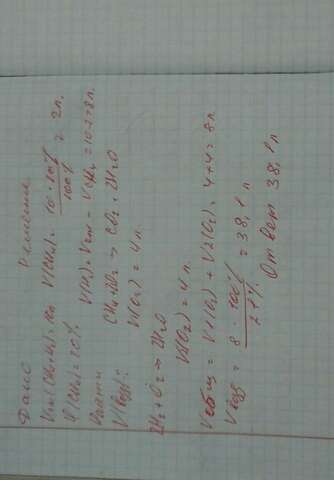 Дано Решение
Vсм(CH4+H2)=10л V(CH4)= 10 · 20% / 100% = 2л.
φ(CH4)=20% V(H2)=Vсм - VCH4 = 10-2=8л.
Найти
V(возд)? CH4+2O2 → CO2 + 2H2O
V(O2)=4л.
2H2+O2 → 2H2O
V2(O2)=4л.
Vобщ = V1(O2) + V2(O2) = 4+4=8л
Vвозд = 8 · 100% / 21% = 38,1 л
Ответ 38,1л